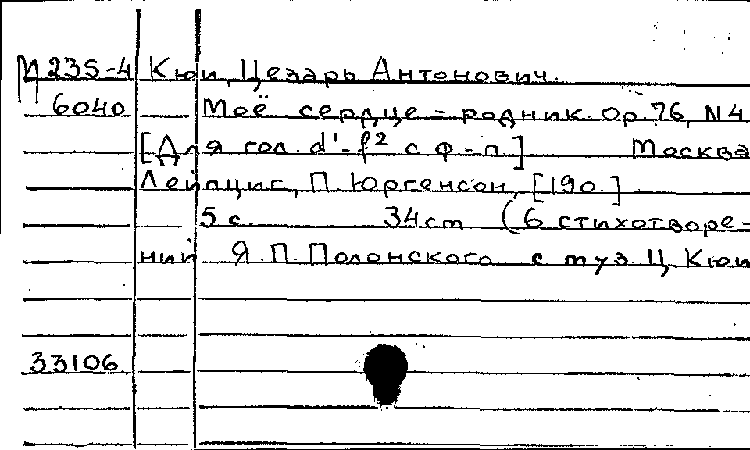 М 235-4 Кюи, Цезарь Антонович.
6040 Моё сердце - родник. Op. 76, N 4
[Для гол. d¹-f² с ф-п.] Москва
Лейпциг, П. Юргенсон, [190.]
5 с. 34 cm (6 стихотворе-
ний Я. П. Полонского с муз. Ц. Кюи
33106